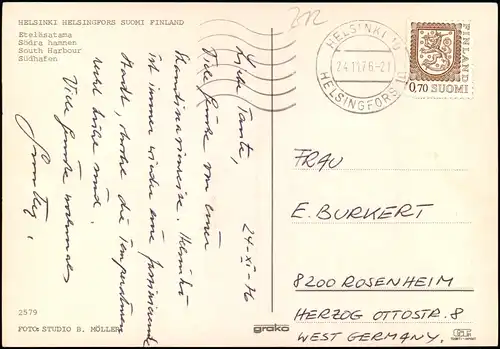 HELSINKI HELSINGFORS SUOMI FINLAND
Eteläsatama
Södra hamnen
South Harbour
Südhafen
HELSINKI 10
24.11.76-21
HELSINGFORS 10
FINLAND
0,70 SUOMI
Liebe Tante,
24-XI-76
Viele Grüße von einer
Skandinavienreise. Helsinki
ist immer wieder eine faszinierende
Stadt, die Temperaturen
recht kühl sind.
Viele Grüße nochmals
FRAU
E. BURKERT
8200 ROSENHEIM
HERZOG OTTOSTR. 8
WEST GERMANY.
2579
FOTO: STUDIO B. MÖLLER
grako